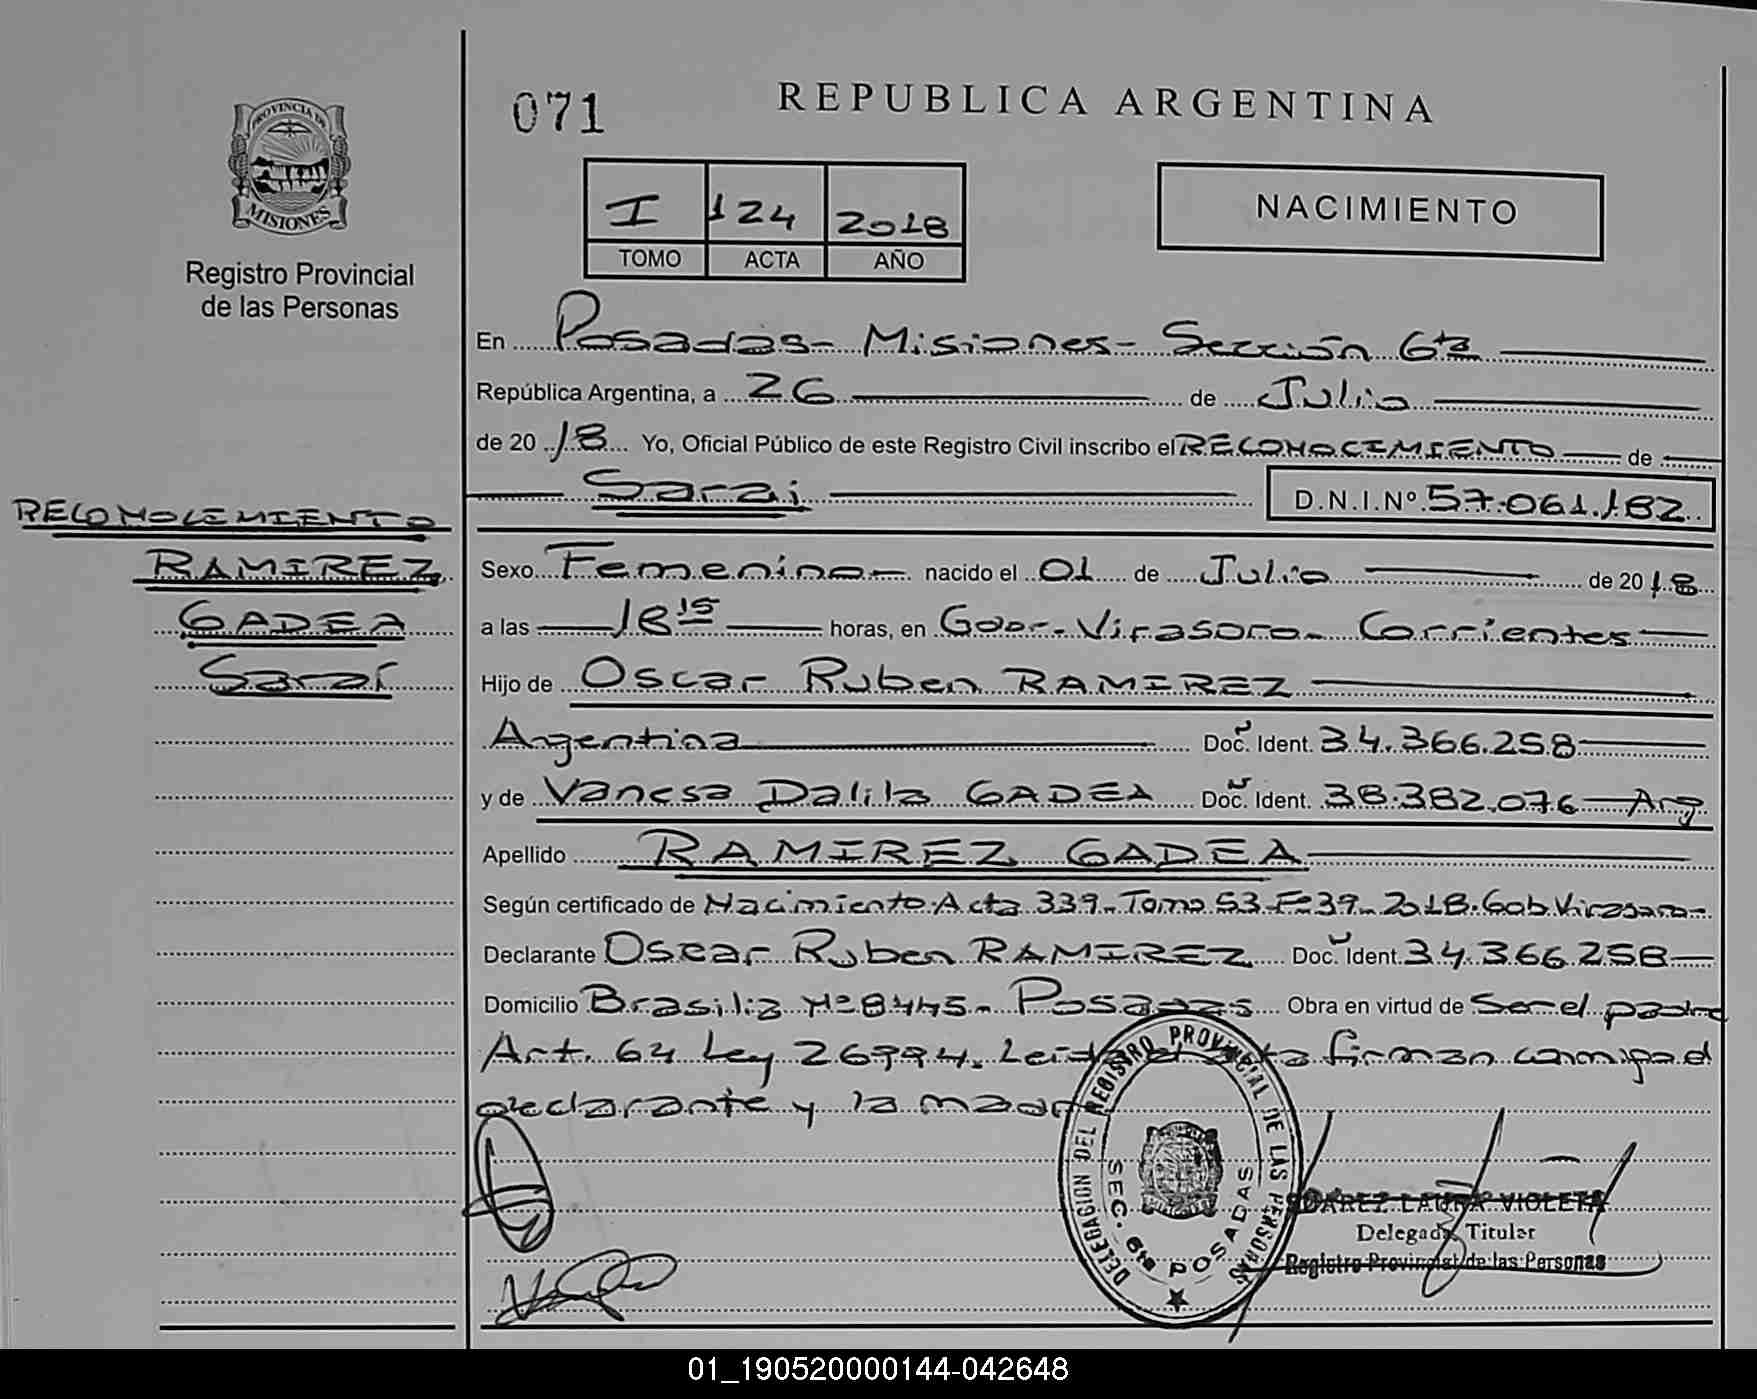 PROVINCIA DE
MISIONES
Registro Provincial
de las Personas
RECONOCIMIENTO
RAMIREZ
GADEA
Sarai
071
REPUBLICA ARGENTINA
I 124 2018
TOMO ACTA AÑO
NACIMIENTO
En Posadas - Misiones - Sección 6ta
República Argentina, a 26 de Julio
de 2018 Yo, Oficial Público de este Registro Civil inscribo el RECONOCIMIENTO de
Sarai D.N.I.Nº 57.061.182
Sexo Femenino nacido el 01 de Julio de 2018
a las 18 15 horas, en Gdor. Virasoro - Corrientes
Hijo de Oscar Ruben RAMIREZ
Argentina Doc. Ident. 34.366.258
y de Vanesa Dalila GADEA Doc. Ident. 38.382.076 - Arg
Apellido RAMIREZ GADEA
Según certificado de Nacimiento Acta 339 - Tomo 53 - Fº 39 - 2018 - Gob. Virasoro -
Declarante Oscar Ruben RAMIREZ Doc. Ident. 34.366.258
Domicilio Brasilia Nº 8445 - Posadas Obra en virtud de Ser el padre
Art. 64 Ley 26994. Leida el acta firman conmigo el
declarante y la madre
DELEGACION DEL REGISTRO PROVINCIAL DE LAS PERSONAS
SEC. 6ta POSADAS
SUAREZ LAURA VIOLETA
Delegada Titular
Registro Provincial de las Personas
01_190520000144-042648